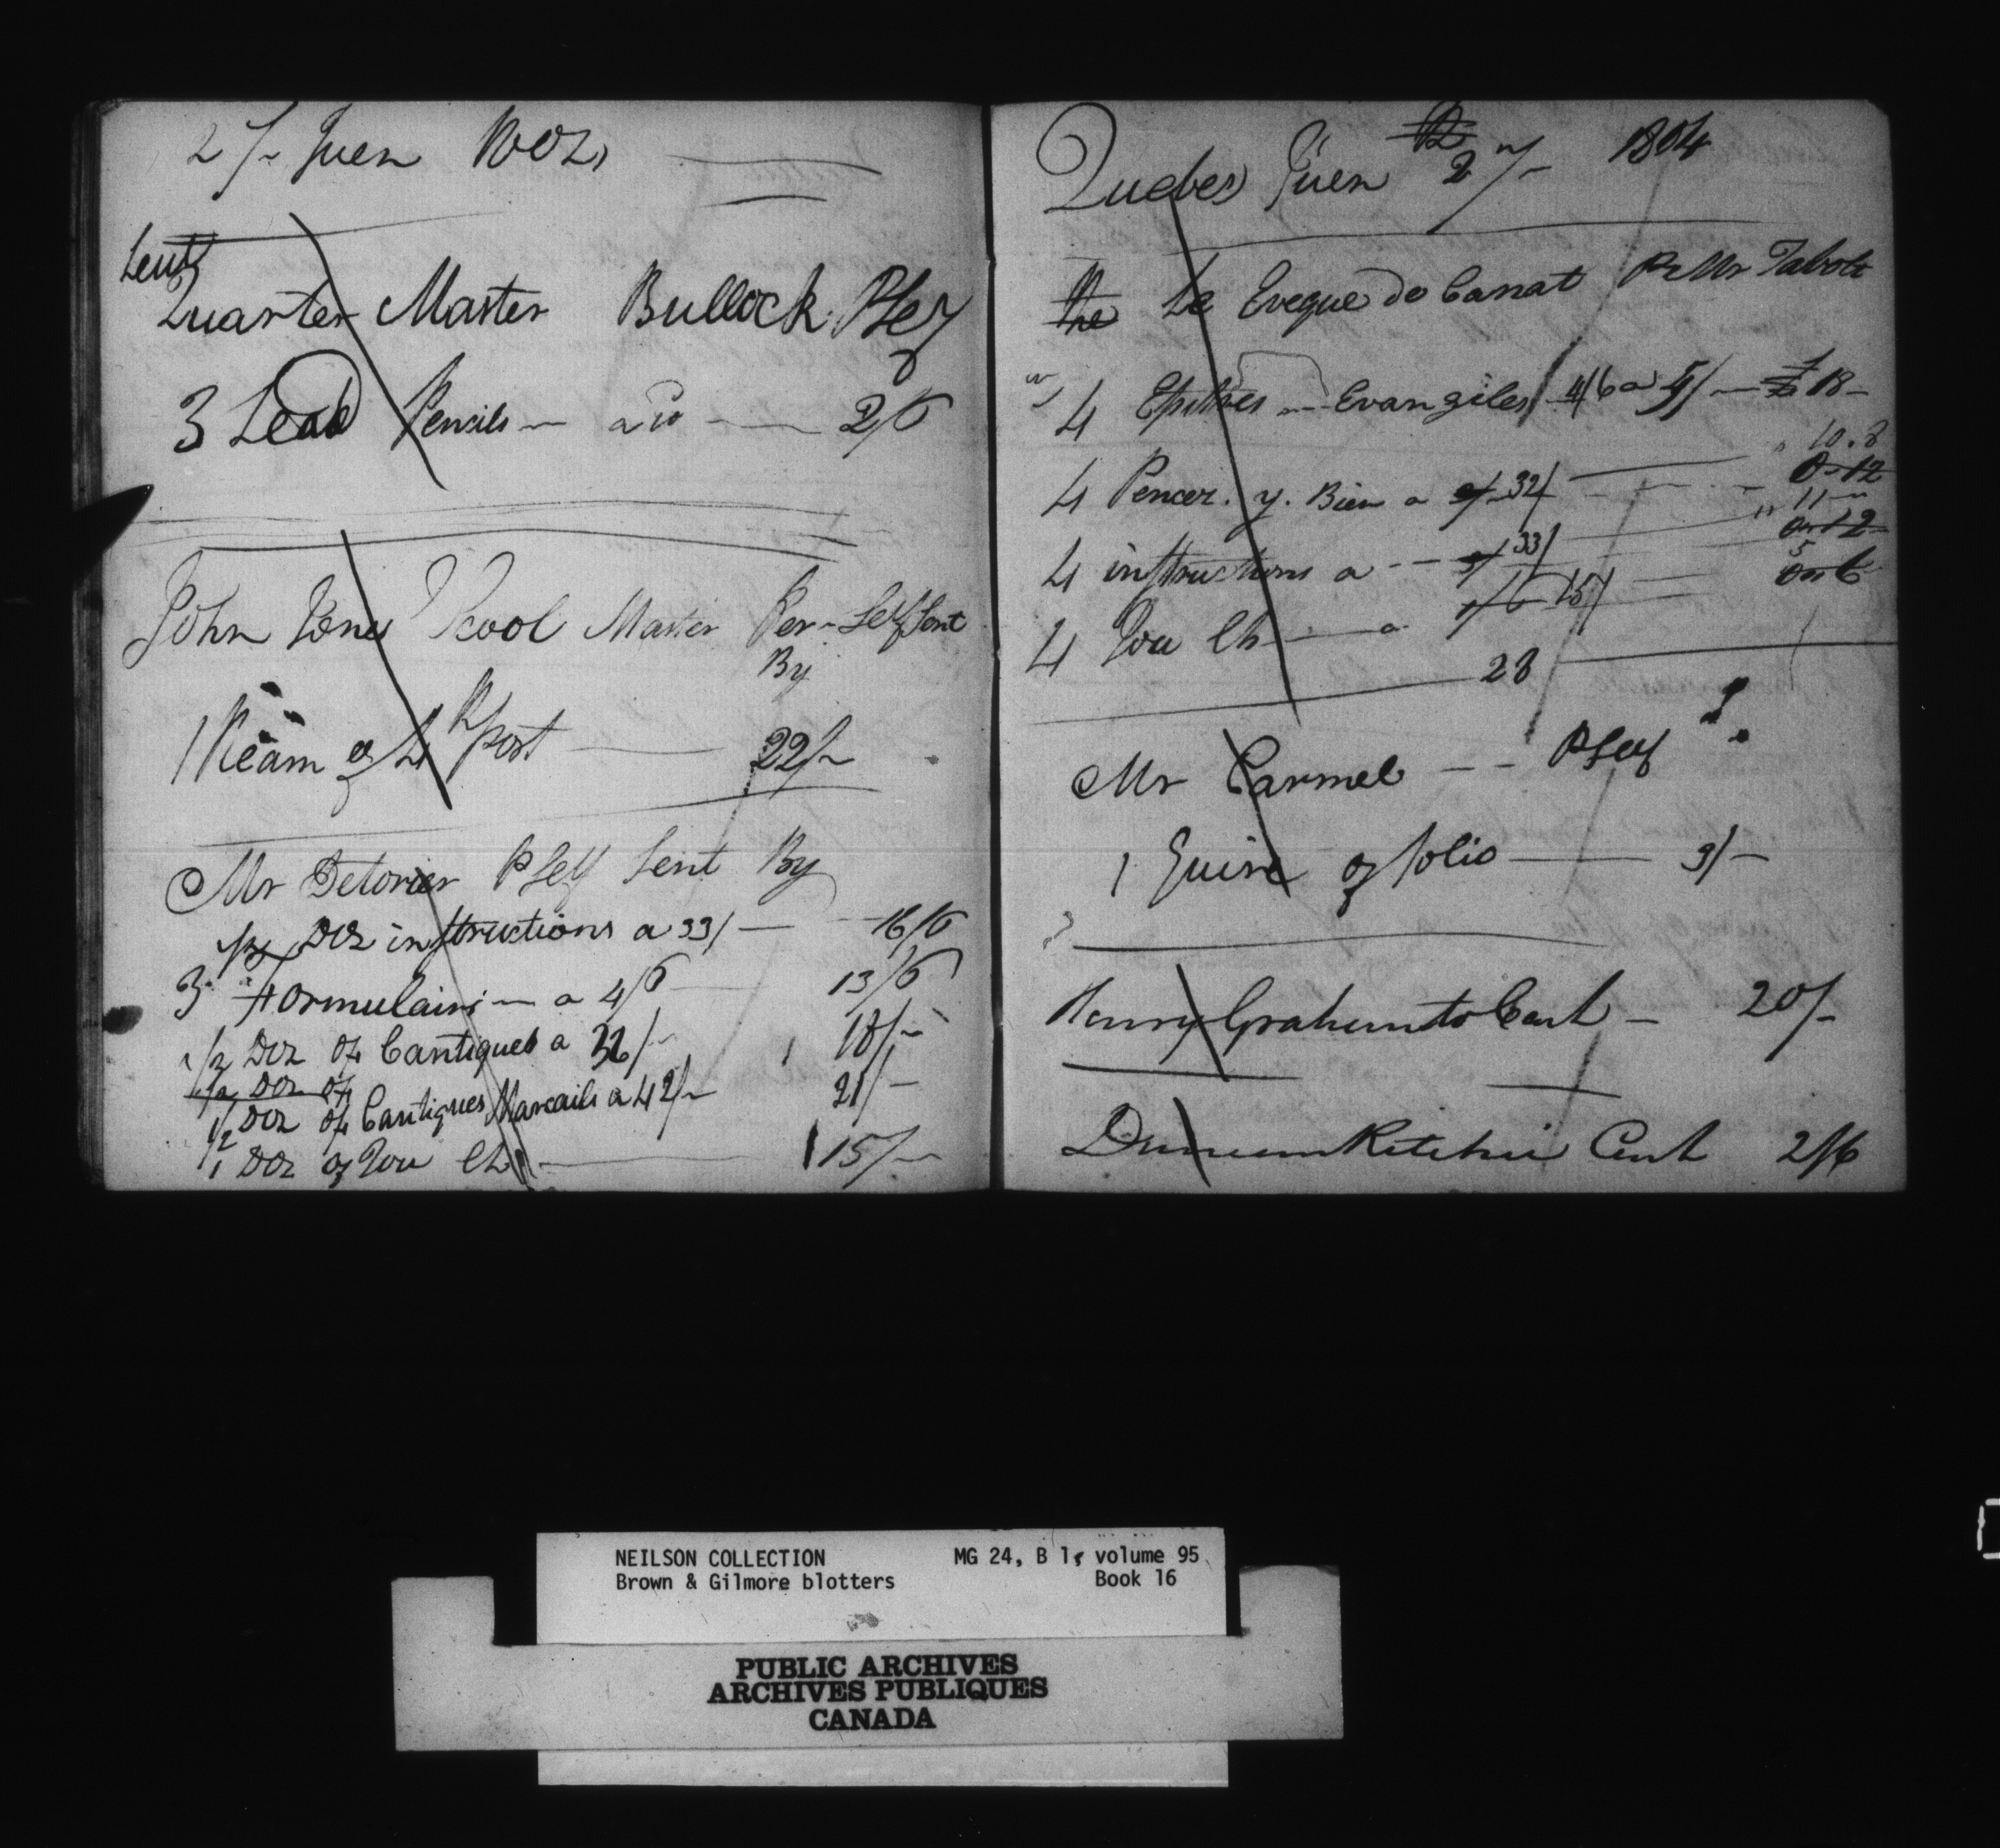 27 Juen
Sent
Quarter Master Bullock PSelf
3 Lead Pencils — a 10 — 2/6
John Jones Scool Master Per Self Sent
By
1 Ream of 4 post — 22/-
Mr Detorier PSelf Sent By
1/2 Doz instructions a 33/ — 16/6
3 Formulairs — a 4/6 13/6
1/2 Doz of Cantiques a 36/- 18/-
1/2 Doz of
1/2 Doz of Cantiques Marsails a 42/- 21/-
1 Doz of Jou Ch — 15/-
Quebec Juen 27 1804
The Le Eveque de Canat Pr Mr Tabote
4 Epitres Evangiles 4/6 a 5/ — 18 -
4 Pencez. y. Bien a 32/ 10.8
0-12
4 instructions a -- 33/ 11
0-12
4 Jou Ch — a 1/6 15/ 5
0-6
28
Mr Carmel -- PSelf
1 Quire of folio — 3/-
Henry Graham to Cash — 20/-
Duncan Ritchie Cash 2/6
NEILSON COLLECTION MG 24, B 1, volume 95
Brown & Gilmore blotters Book 16
PUBLIC ARCHIVES
ARCHIVES PUBLIQUES
CANADA